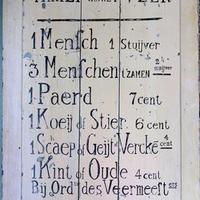 1 Mensch 1 Stuijver
3 Menschen tzamen 2 stuijver
1 Paerd 7 cent
1 Koeij of Stier 6 cent
1 Schaep of Geijt Vercke 4 cent
1 Kint of Oude 4 cent
Bij Ord des Veermeest